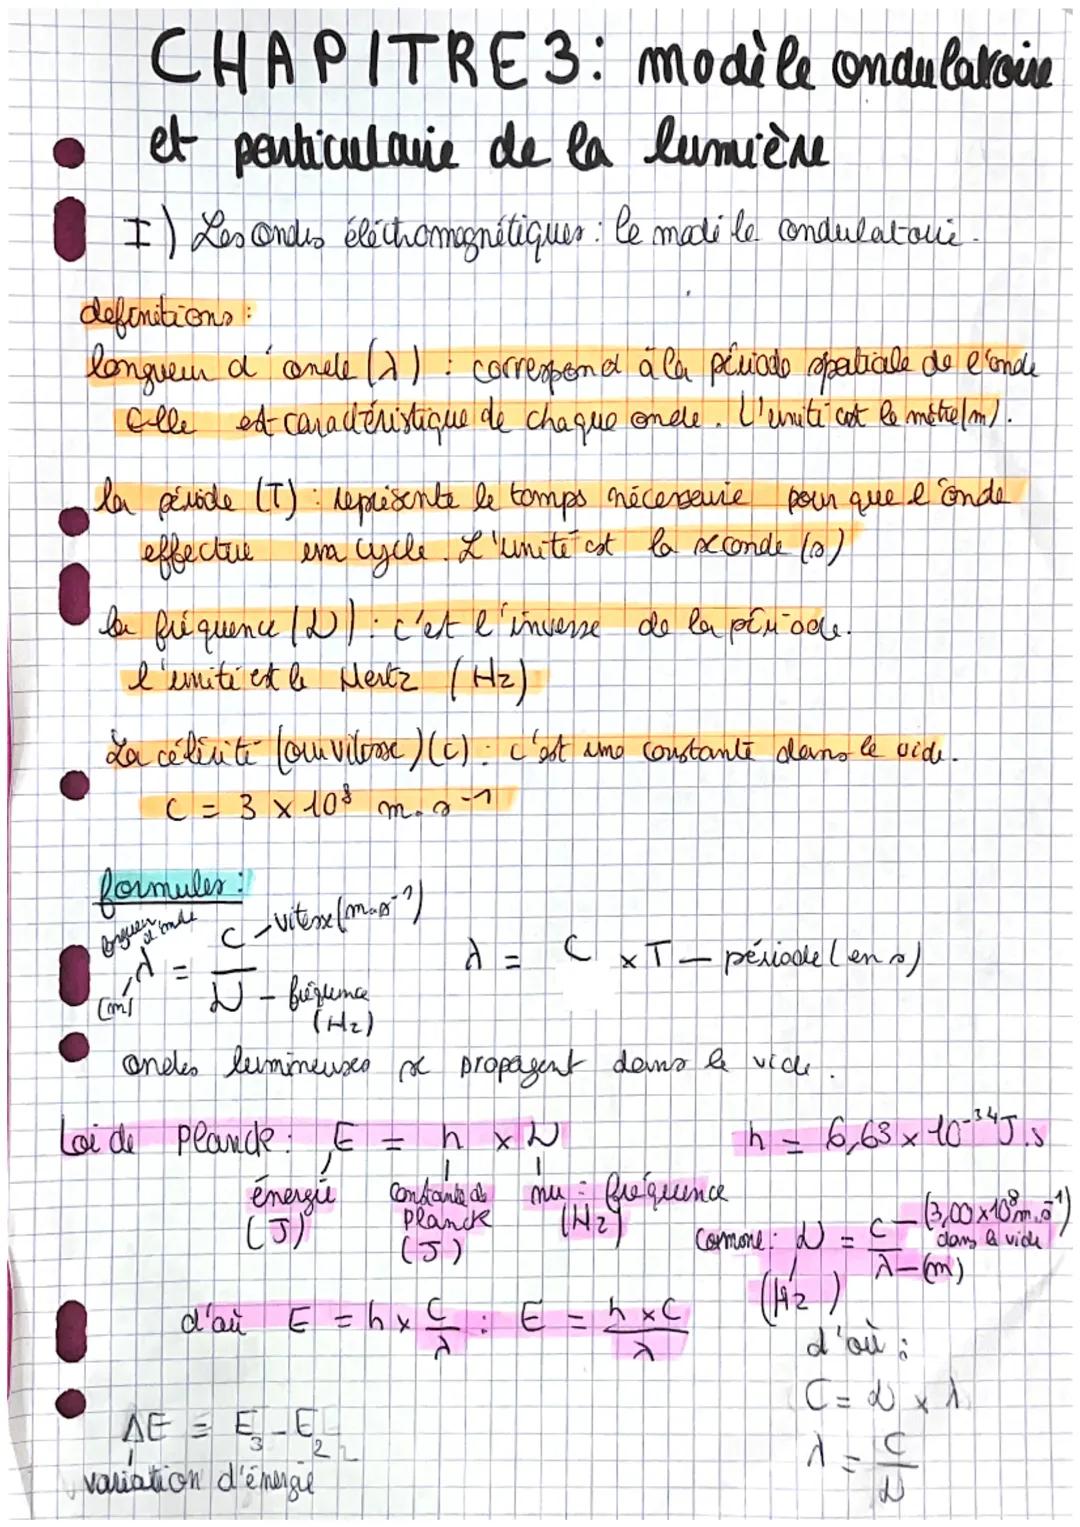 CHAPITRE 3: modèle ondulatoire
et particulaire de la lumière
I) Les ondes éléctromagnétiques : le modèle ondulatoire.
definitions :
longueur d'onde (λ) : correspond à la période spatiale de l'onde
elle est caractéristique de chaque onde. L'unité est le mètre (m).
la période (T) : représente le temps nécessaire pour que l'onde
effectue un cycle. L'unité est la seconde (s)
la fréquence (ν) : c'est l'inverse de la période.
l'unité est le Hertz (Hz)
La célérité (ou vitesse) (c) : c'est une constante dans le vide.
C = 3 × 10⁸ m.s⁻¹
formules :
longueur d'onde (m) λ = C – vitesse (m.s⁻¹) / ν – fréquence (Hz)
λ = C × T – période (en s)
ondes lumineuses se propagent dans le vide.
Loi de Planck : E = h × ν
h = 6,63 × 10⁻³⁴ J.s
énergie (J)
constante de Planck (J)
nu : fréquence (Hz)
comme : ν = C/λ
(3,00×10⁸ m.s⁻¹) dans le vide
(m)
(Hz)
d'où E = h × C/λ : E = h × C/λ
d'où :
C = ν × λ
λ = C/ν
ΔE = E₃ - E₂
variation d'énergie